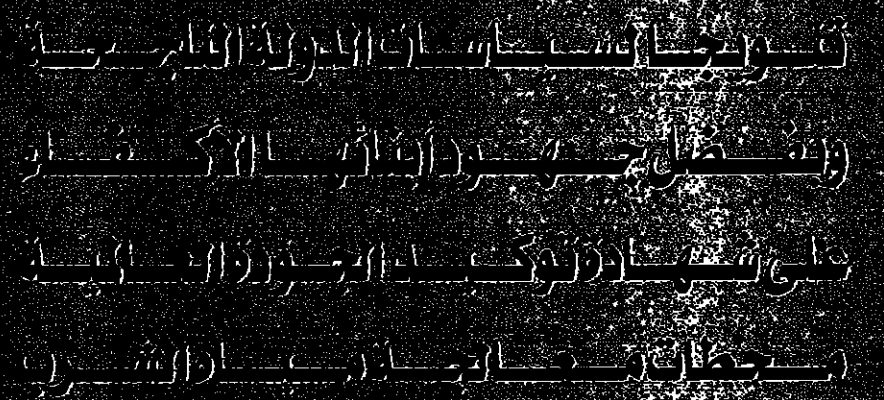 تتويجا لسياسات الدولة الناجحة
وبفضل جهود أبنائها الأكفاء
على شهادة توكيد الجودة العالمية
محطات معالجة مياه الشرب